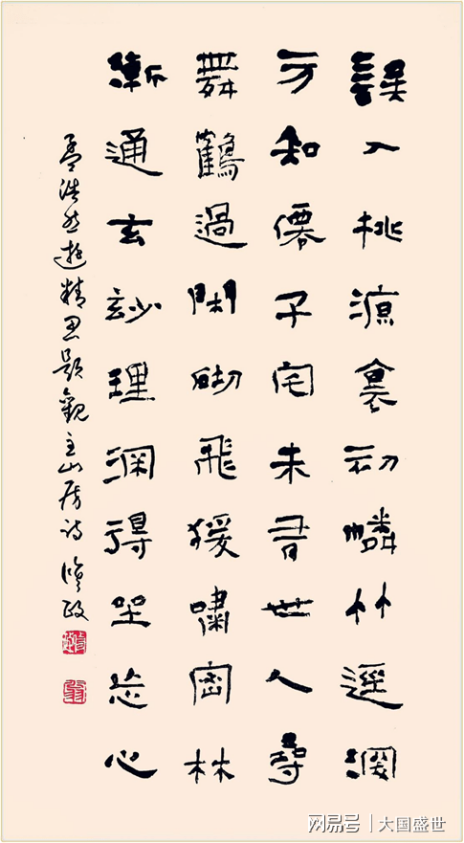 誤入桃源裏初憐竹逕深
方知僊子宅未有世人尋
舞鶴過閑砌飛猨嘯密林
漸通玄玅理深得坐忘心
孟浩然遊精思題觀主山房詩 政
网易号 | 大国盛世